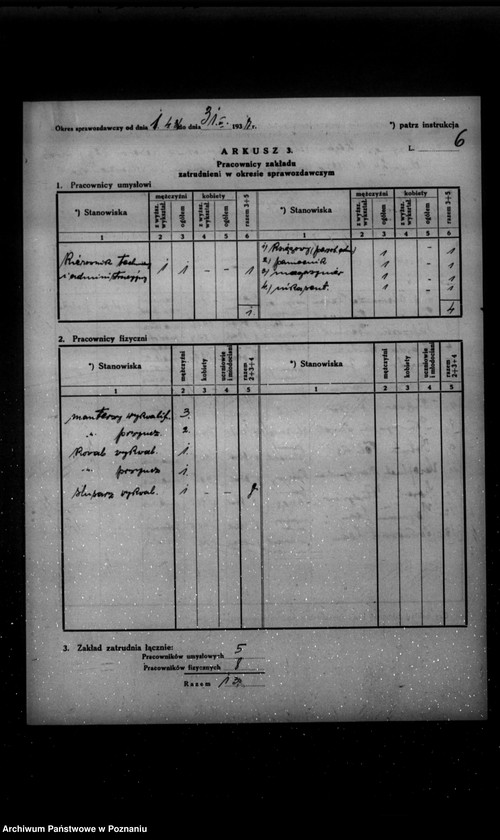 Okres sprawozdawczy od dnia 1 4 do dnia 31 193 r.
*) patrz instrukcja
L. 6
ARKUSZ 3.
Pracownicy zakładu
zatrudnieni w okresie sprawozdawczym
1. Pracownicy umysłowi
*) Stanowiska mężczyźni kobiety razem 3+5 *) Stanowiska mężczyźni kobiety razem 3+5
z wyższ. wykształ. ogółem z wyższ. wykształ. ogółem z wyższ. wykształ. ogółem z wyższ. wykształ. ogółem
1 2 3 4 5 6 1 2 3 4 5 6
Kierownik techn. 1 1 - - 1
i administracyjny
1) Księgowy 1 - 1
2) pomocnik 1 - 1
3) magazynier 1 - 1
4) inkasent. 1 - 1
1 4
2. Pracownicy fizyczni
*) Stanowiska mężczyźni kobiety uczniowie i młodociani razem 2+3+4 *) Stanowiska mężczyźni kobiety uczniowie i młodociani razem 2+3+4
1 2 3 4 5 1 2 3 4 5
monterzy wykwalif. 3
" przyucz. 2
Kowal wykwal. 1
" przyucz 1
ślusarz wykwal. 1 - - 8
3. Zakład zatrudnia łącznie:
Pracowników umysłowych 5
Pracowników fizycznych 8
Razem 13
Archiwum Państwowe w Poznaniu